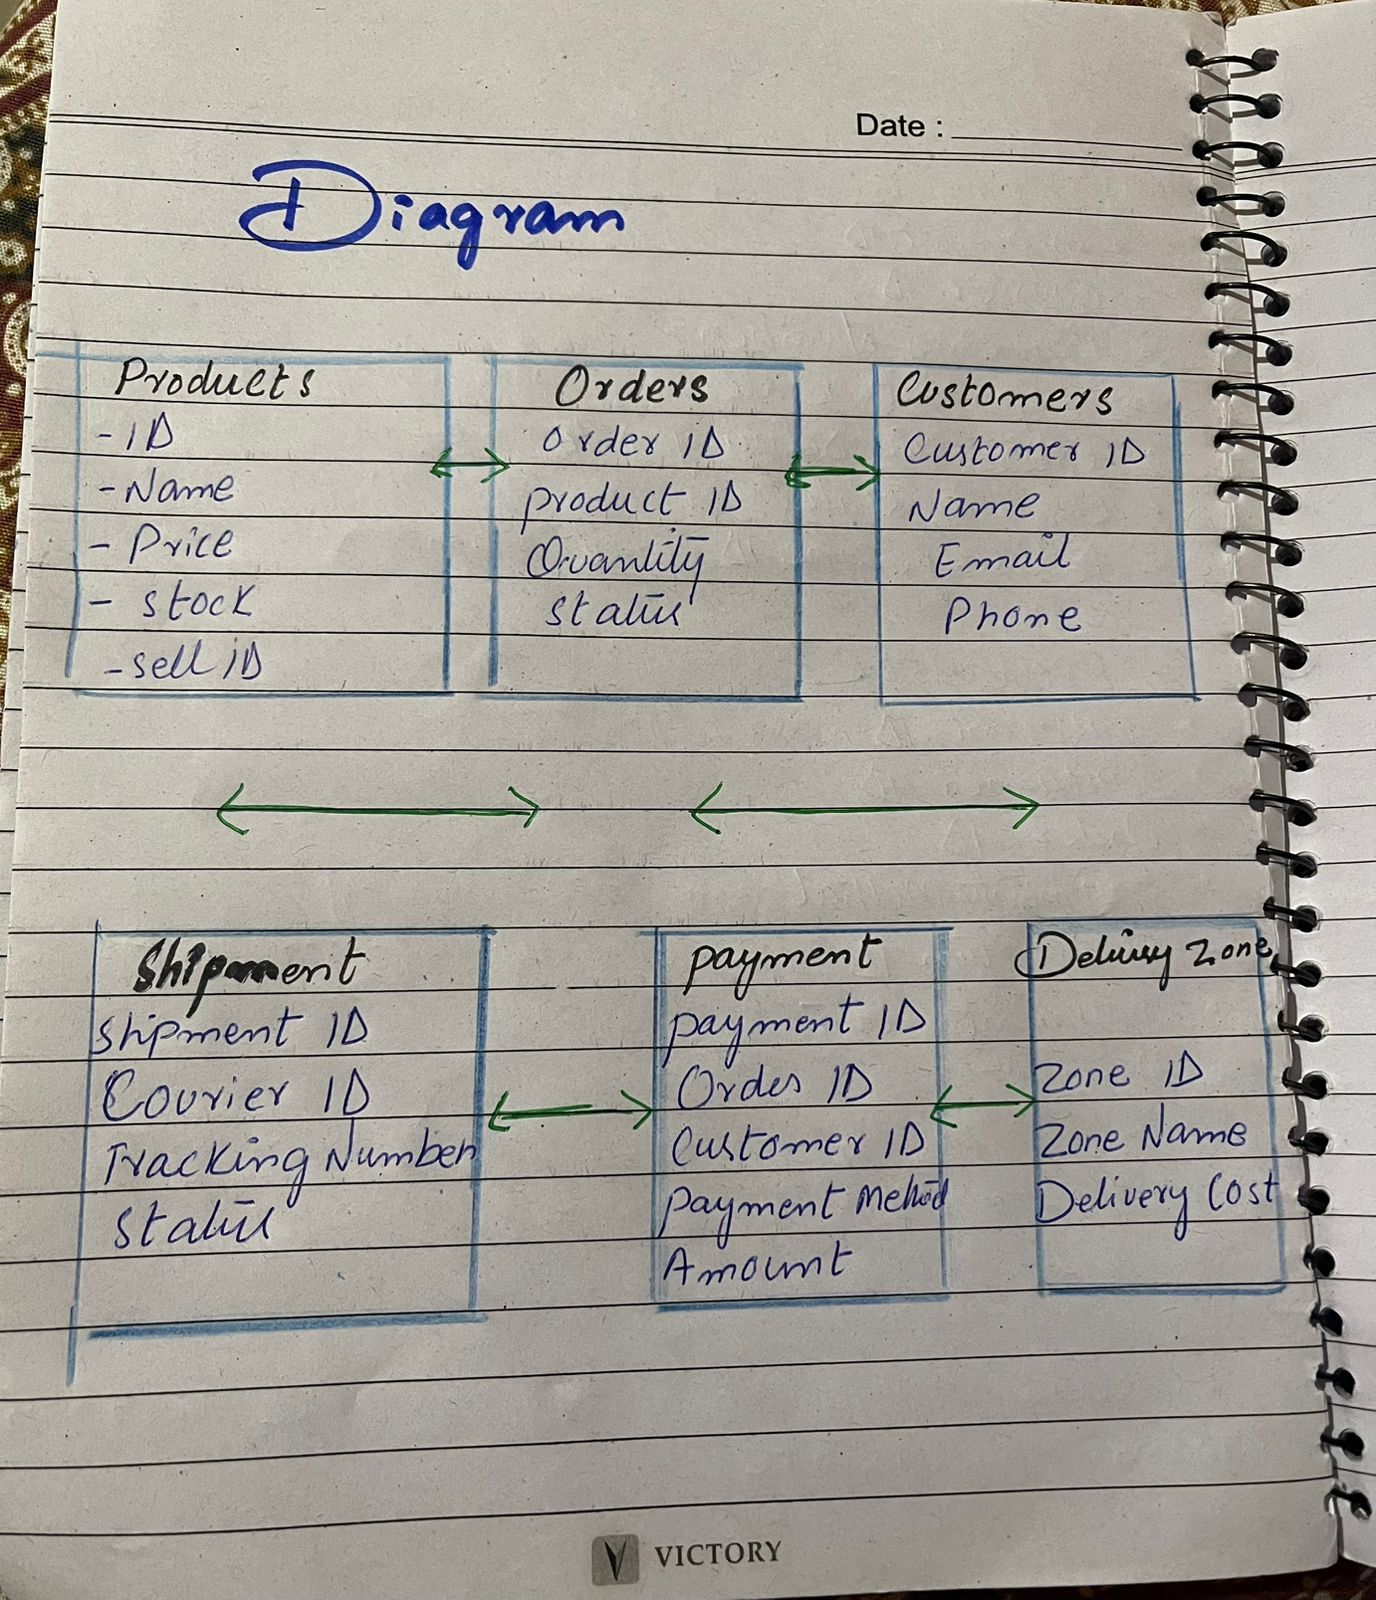 Date :
Diagram
Products
- ID
- Name
- Price
- stock
- sell ID
Orders
Order ID
product ID
Quantity
status
Customers
Customer ID
Name
Email
Phone
Shipment
Shipment ID
Courier ID
Tracking Number
Status
payment
payment ID
Order ID
Customer ID
payment Method
Amount
Delivery Zone
Zone ID
Zone Name
Delivery Cost
V VICTORY